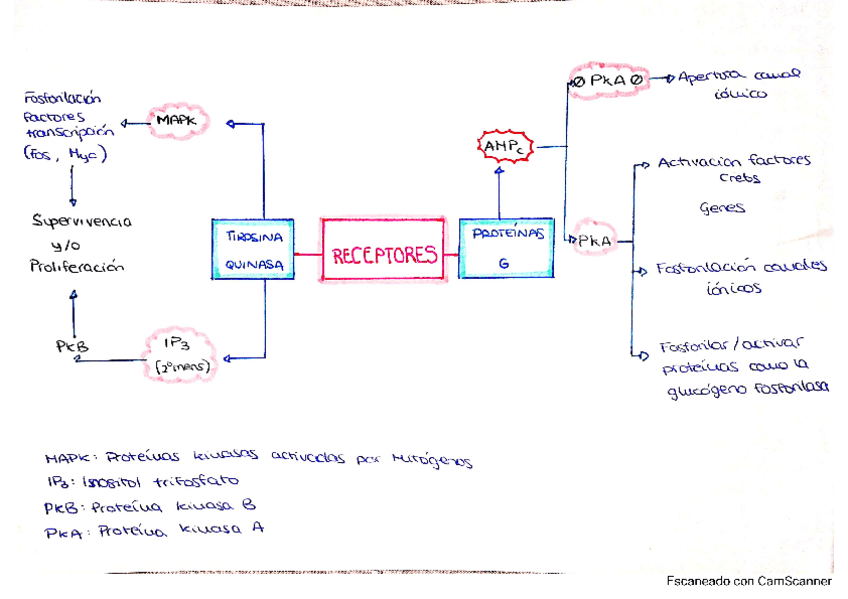 Fosforilación
factores
transcripción
(Fos, Myc)
MAPK
Supervivencia
y/o
Proliferación
PKB
IP3
(2º mens)
TIROSINA
QUINASA
RECEPTORES
PROTEÍNAS
G
AMPc
Ø PKA Ø
Apertura canal
iónico
PKA
Activación factores
Crebs
Genes
Fosforilación canales
iónicos
Fosforilar/activar
proteínas como la
glucógeno fosforilasa
MAPK: Proteínas kinasas activadas por Mitógenos
IP3: Inositol trifosfato
PKB: Proteína kinasa B
PKA: Proteína kinasa A
Escaneado con CamScanner